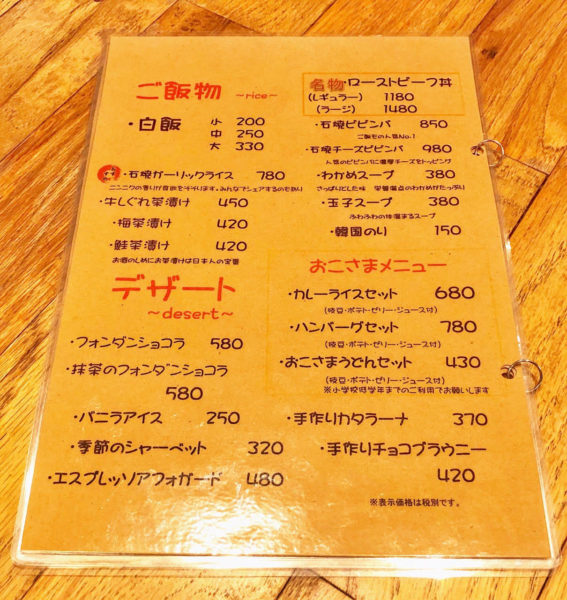 ご飯物 ～rice～
・白飯 小 200
中 250
大 330
・石焼ガーリックライス 780
ニンニクの香りが食欲をそそります。みんなでシェアするのもあり
・牛しぐれ茶漬け 450
・梅茶漬け 420
・鮭茶漬け 420
お酒のしめにお茶漬けは日本人の定番
名物・ローストビーフ丼
(レギュラー) 1180
(ラージ) 1480
・石焼ビビンバ 850
ご飯もの人気No.1
・石焼チーズビビンバ 980
人気のビビンバに濃厚チーズをトッピング
・わかめスープ 380
さっぱりとした味 栄養満点のわかめがたっぷり
・玉子スープ 380
ふわふわの体温まるスープ
・韓国のり 150
デザート
～desert～
・フォンダンショコラ 580
・抹茶のフォンダンショコラ
580
・バニラアイス 250
・季節のシャーベット 320
・エスプレッソアフォガード 480
おこさまメニュー
・カレーライスセット 680
(枝豆・ポテト・ゼリー・ジュース付)
・ハンバーグセット 780
(枝豆・ポテト・ゼリー・ジュース付)
・おこさまうどんセット 430
(枝豆・ポテト・ゼリー・ジュース付)
※小学校低学年までのご利用でお願いします
・手作りカタラーナ 370
・手作りチョコブラウニー
420
※表示価格は税別です。